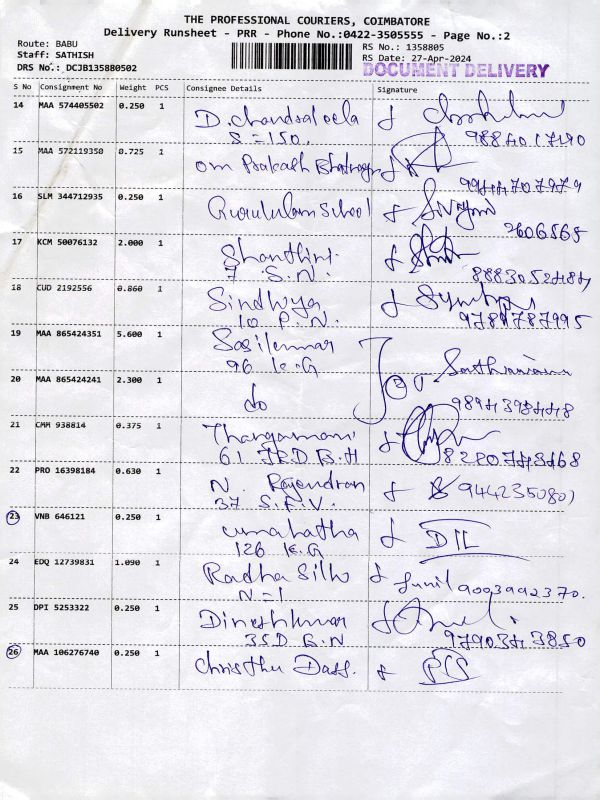 THE PROFESSIONAL COURIERS, COIMBATORE
Delivery Runsheet - PRR - Phone No.:0422-3505555 - Page No.:2
Route: BABU
Staff: SATHISH
DRS No.: DCJB135880502
RS No.: 1358805
RS Date: 27-Apr-2024
DOCUMENT DELIVERY
S No Consignment No Weight PCS Consignee Details Signature
14 MAA 574405502 0.250 1 D. chandraleela
S = 150.
15 MAA 572119350 0.725 1 om Prakash
16 SLM 344712935 0.250 1 Gurukulam School
2606565
17 KCM 50076132 2.000 1 Shanthini
7 S.N.
18 CUD 2192556 0.860 1 Sindhya
10 P.N.
9789787995
19 MAA 865424351 5.600 1 Sasikumar
96 K.G
20 MAA 865424241 2.300 1 do
9894398448
21 CMM 938814 0.375 1 Thangamani
8220743468
22 PRO 16398184 0.630 1 N. Rajendran
37 S.F.V.
23 VNB 646121 0.250 1 umahatha DIL
126 K.G
24 EDQ 12739831 1.090 1 Radha Silks Sunil 9003992370.
N = 1
25 DPI 5253322 0.250 1 Dineshkumar
9790343850
26 MAA 106276740 0.250 1 Christhu Dass. PCS